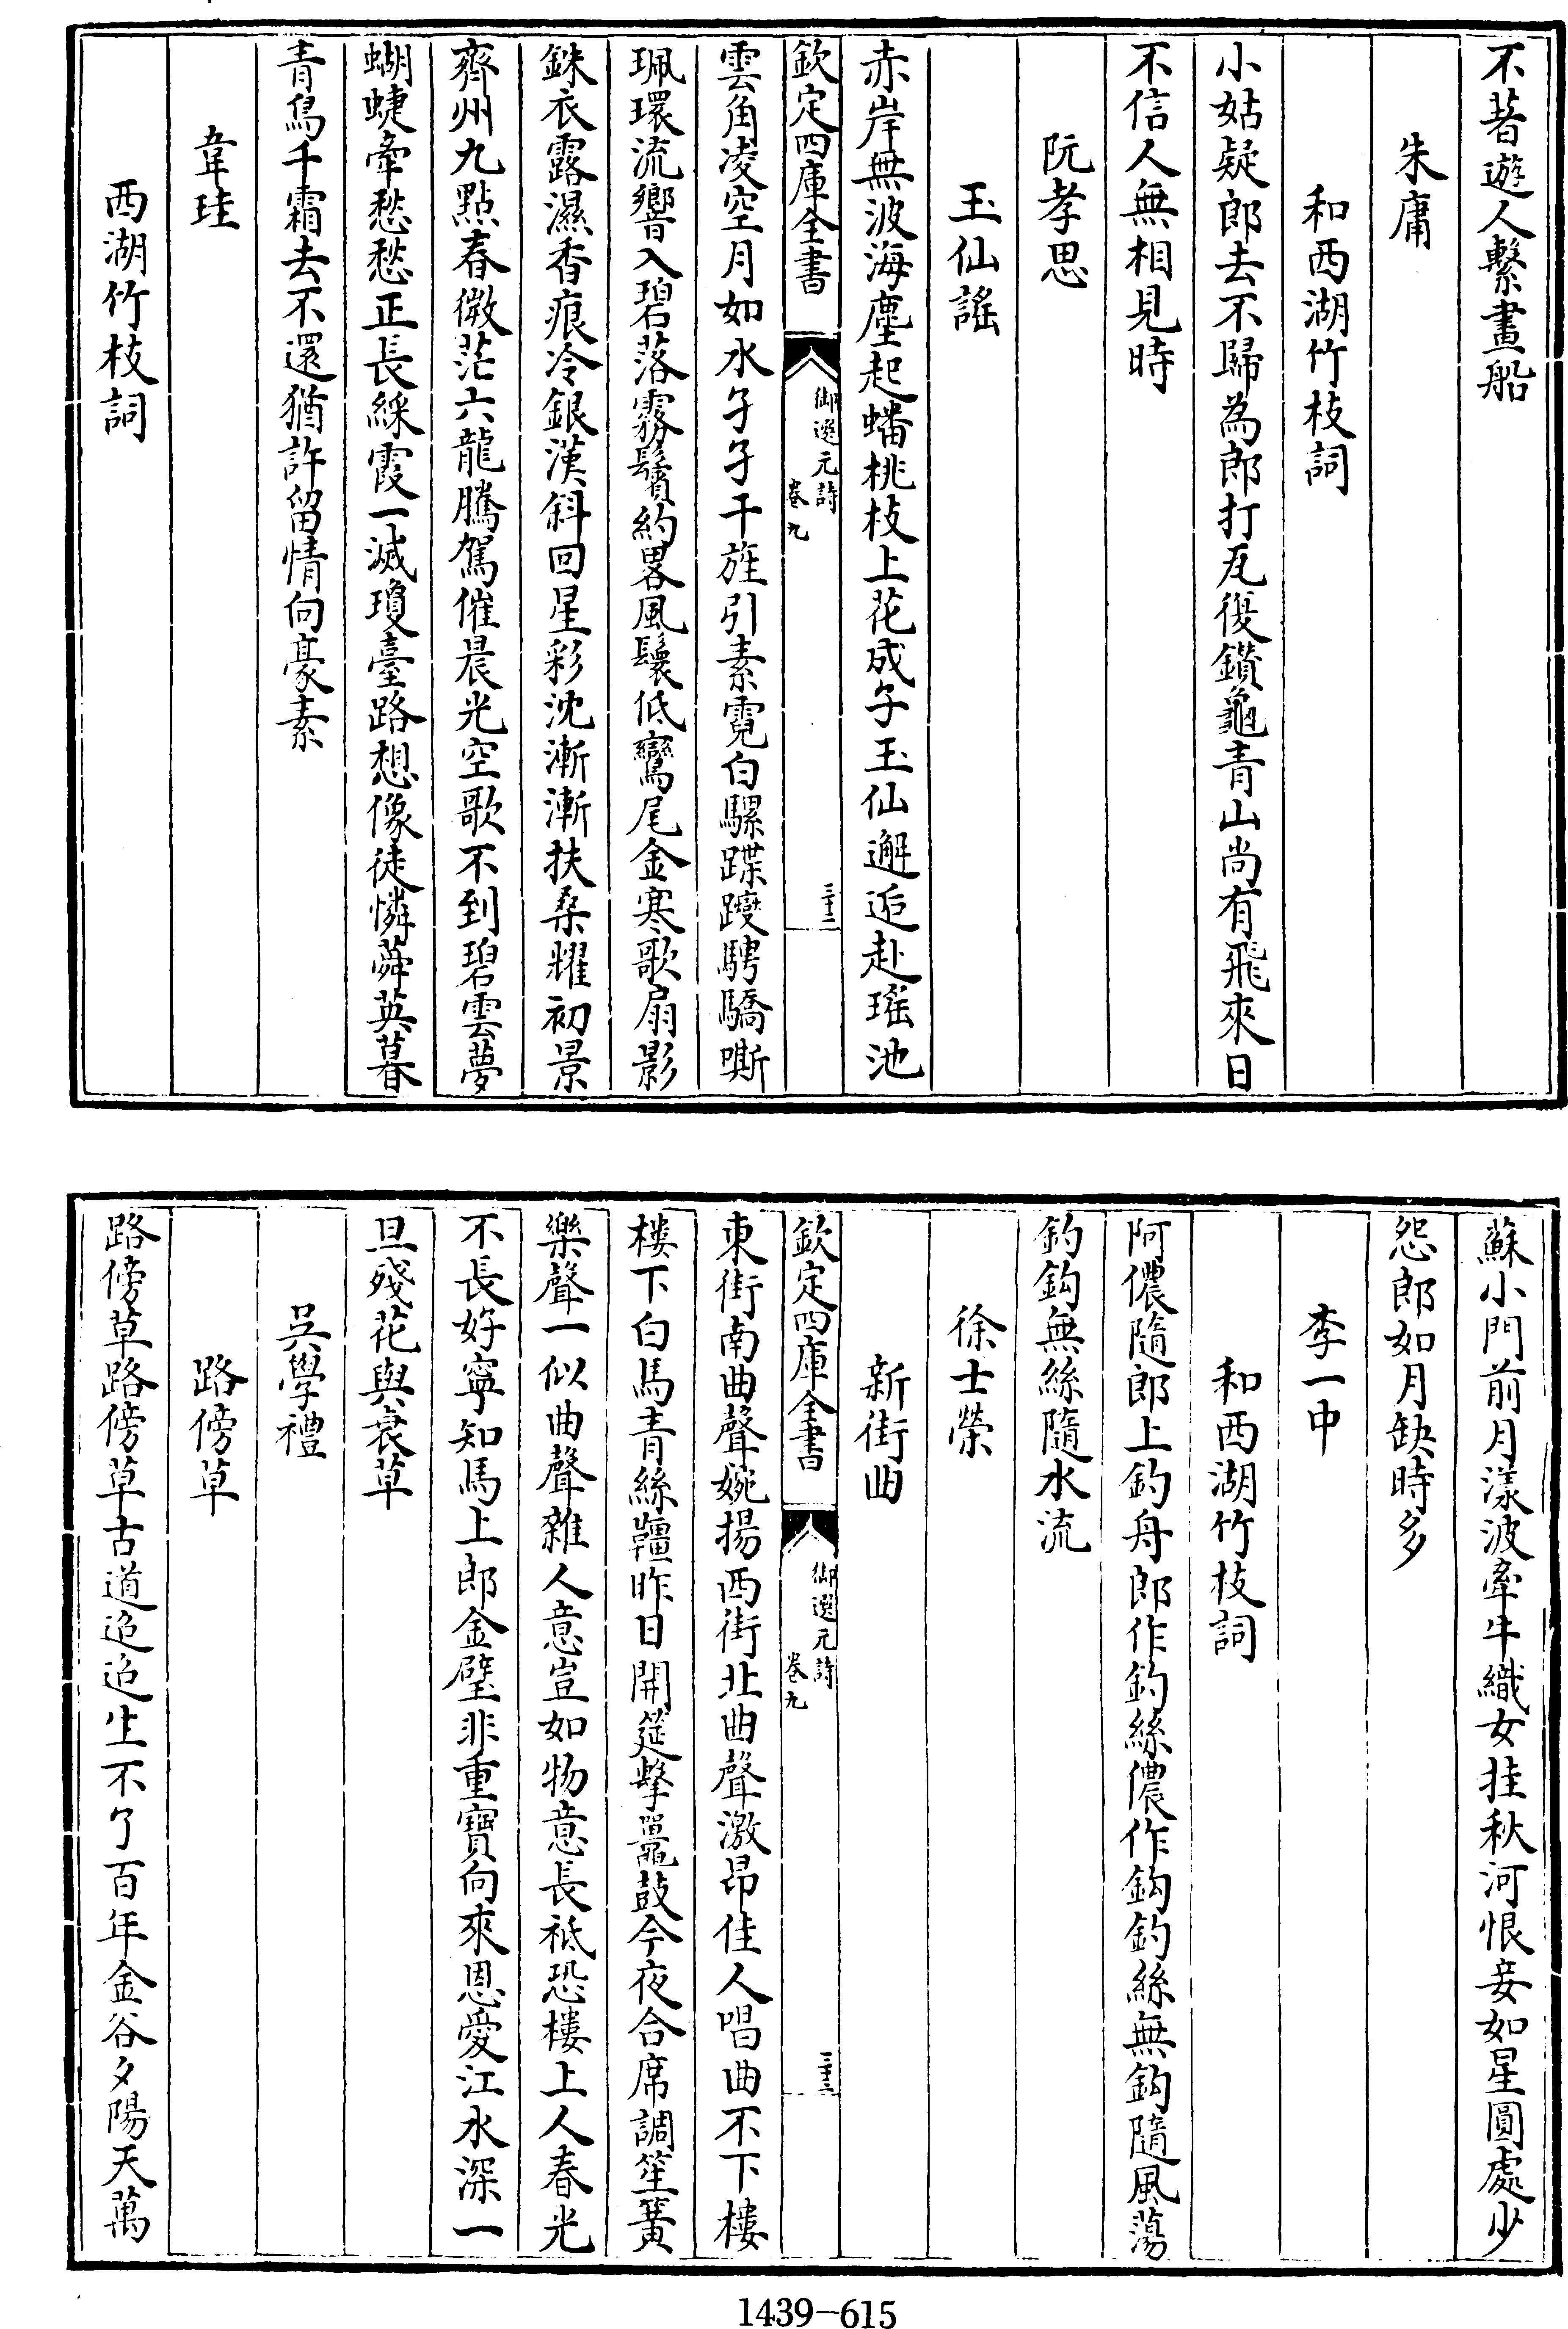 不著遊人繫畫船
朱庸
和西湖竹枝詞
小姑疑郎去不歸為郎打瓦復鑽龜青山尚有飛來日
不信人無相見時
阮孝思
玉仙謠
赤岸無波海塵起蟠桃枝上花成子玉仙邂逅赴瑤池
欽定四庫全書
御選元詩
卷九
三十二
雲角凌空月如水孑孑干旄引素霓白騾蹀躞騁驕嘶
珮環流響入碧落霧鬢約畧風鬟低鸞尾金寒歌扇影
銖衣露濕香痕冷銀漢斜回星彩沈漸漸扶桑耀初景
齊州九點春微茫六龍騰駕催晨光空歌不到碧雲夢
蝴蜨牽愁愁正長綵霞一滅瓊臺路想像徒憐蕣英暮
青鳥千霜去不還猶許留情向豪素
韋珪
西湖竹枝詞
蘇小門前月漾波牽牛織女挂秋河恨妾如星圓處少
怨郎如月缺時多
李一中
和西湖竹枝詞
阿儂隨郎上釣舟郎作釣絲儂作鈎釣絲無鈎隨風蕩
釣鈎無絲隨水流
徐士榮
新街曲
欽定四庫全書
御選元詩
卷九
三十三
東街南曲聲婉揚西街北曲聲激昂佳人唱曲不下樓
樓下白馬青絲韁昨日開筵擊鼉鼓今夜合席調笙簧
樂聲一似曲聲雜人意豈如物意長祗恐樓上人春光
不長好寧知馬上郎金璧非重寶向來恩愛江水深一
旦殘花與衰草
吳學禮
路傍草
路傍草路傍草古道迢迢生不了百年金谷夕陽天萬
1439-615